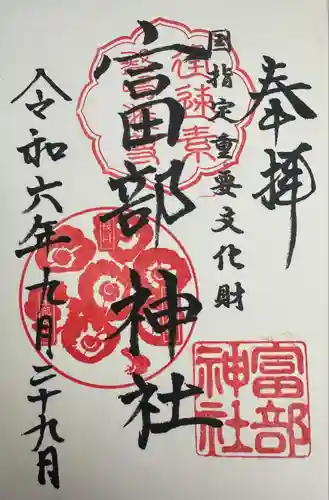 奉拝
国指定重要文化財
富部神社
令和六年九月二十九月
富部
神社